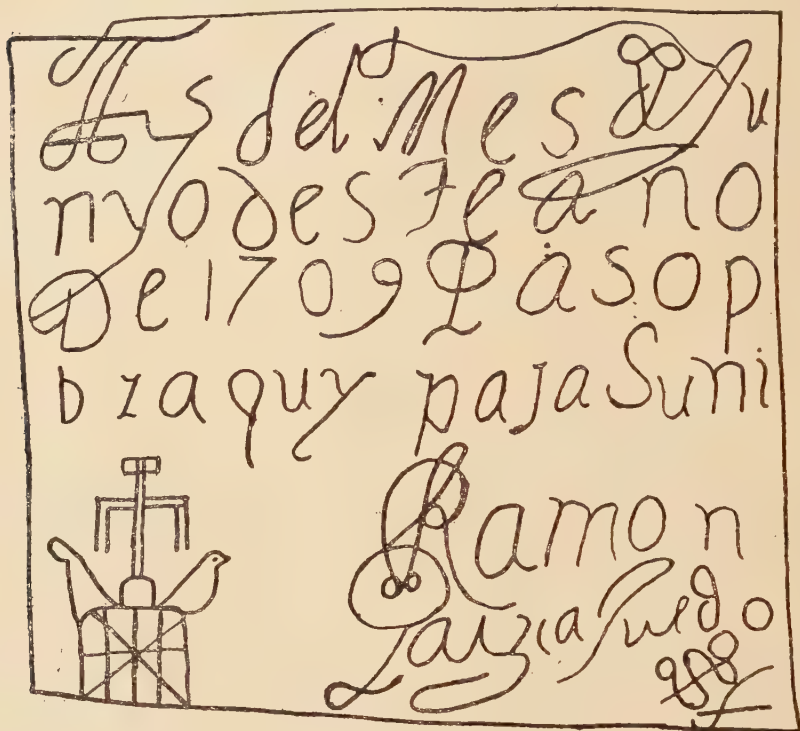 del Mes de Ju
nyo desTe año
De 1709 Paso p
bzaquy paja Suni
Ramon
Garzia Jurado